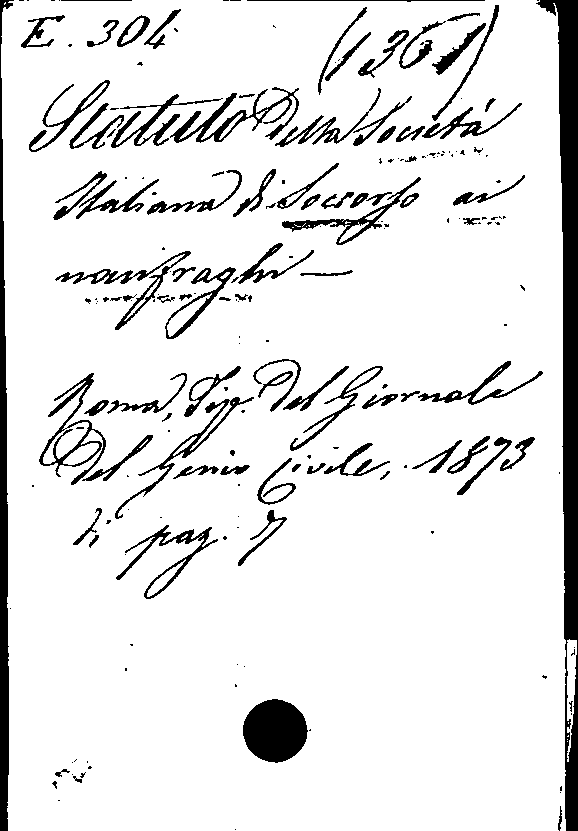 E. 304 (1361)
Statuto della Società
Italiana di Soccorso ai
naufraghi —
Roma, Tip. del Giornale
del Genio Civile, 1873
di pag. 7